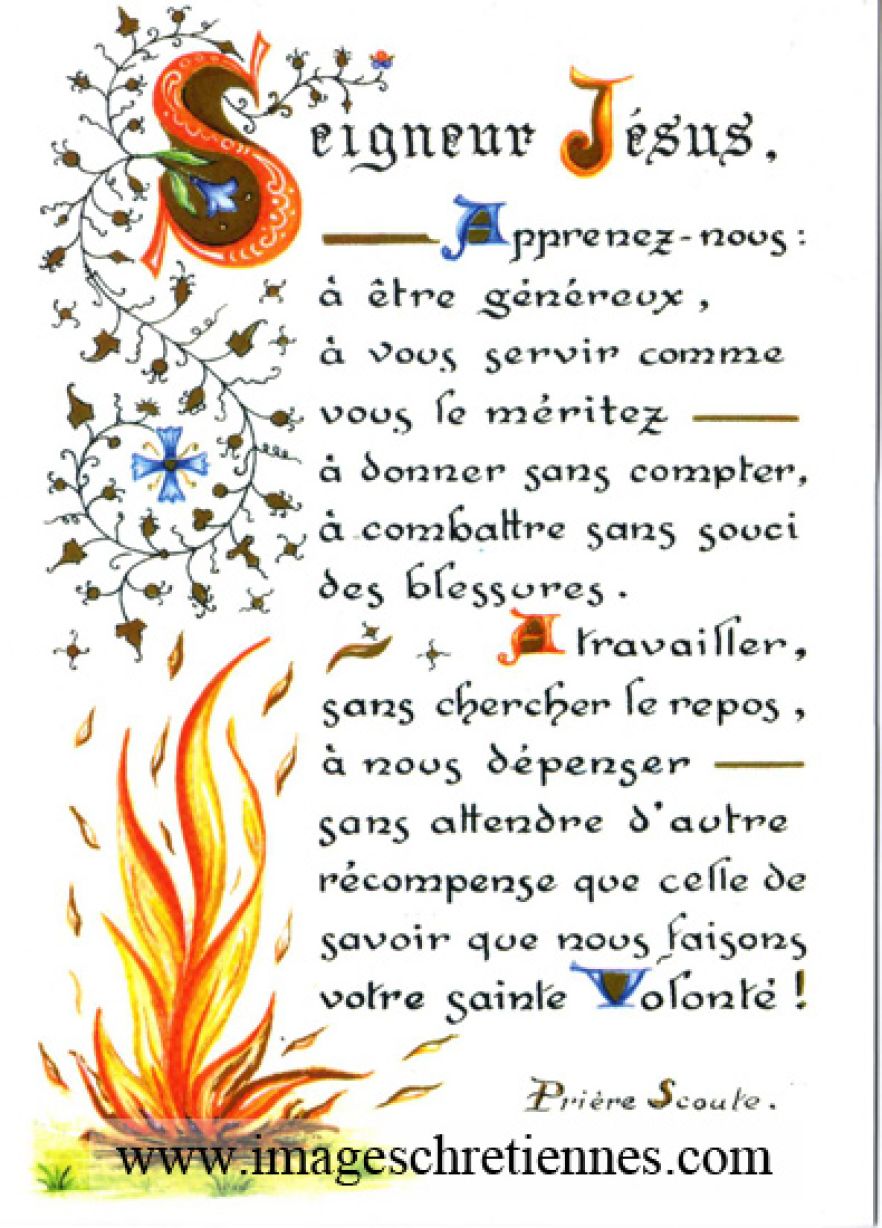 Seigneur Jésus,
Apprenez-nous :
à être généreux,
à vous servir comme
vous le méritez
à donner sans compter,
à combattre sans souci
des blessures.
A travailler,
sans chercher le repos,
à nous dépenser
sans attendre d'autre
récompense que celle de
savoir que nous faisons
votre sainte Volonté !
Prière Scoute.
www.imageschretiennes.com